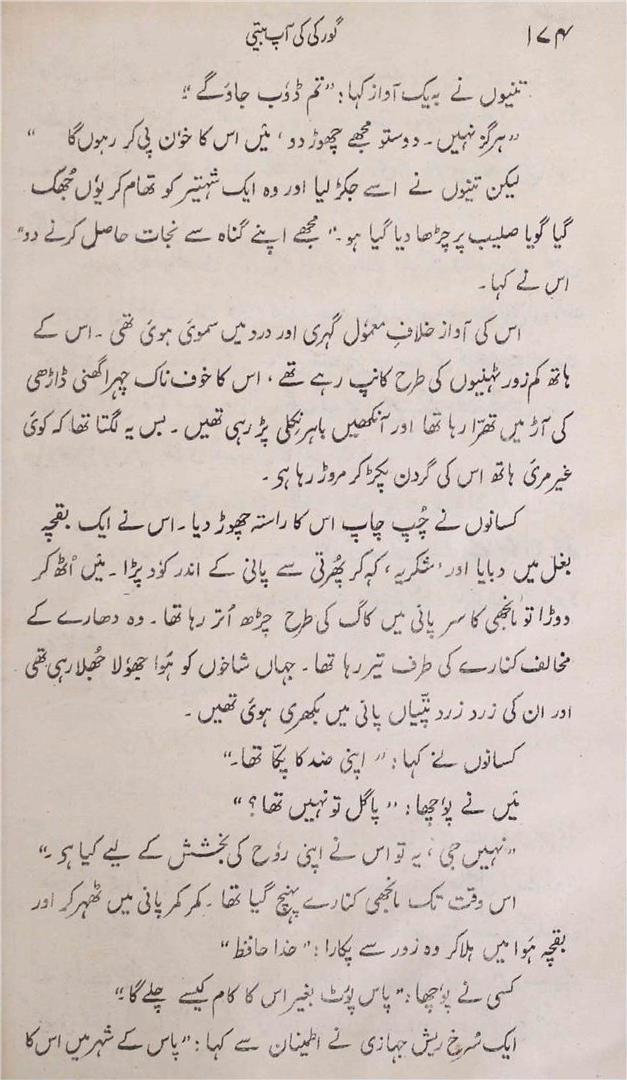 گورکی کی آپ بیتی ۱۷۴
تینوں نے بہ یک آواز کہا: "تم ڈوب جاؤ گے"
"ہرگز نہیں۔ دوستو مجھے چھوڑ دو، مَیں اس کا خون پی کر رہوں گا"
لیکن تینوں نے اسے جکڑ لیا اور وہ ایک شہتیر کو تھام کر یوں جُھک
گیا گویا صلیب پر چڑھا دیا گیا ہو۔ "مجھے اپنے گناہ سے نجات حاصل کرنے دو"
اس نے کہا۔
اس کی آواز خلافِ معمول گہری اور درد میں سموئی ہوئی تھی۔ اس کے
ہاتھ کم زور ٹہنیوں کی طرح کانپ رہے تھے، اس کا خوف ناک چہرا گھنی ڈاڑھی
کی آڑ میں تھرّا رہا تھا اور آنکھیں باہر نِکلی پڑ رہی تھیں۔ بس یہ لگتا تھا کہ کوئی
غیر مرئی ہاتھ اس کی گردن پکڑ کر مروڑ رہا ہی۔
کسانوں نے چُپ چاپ اس کا راستہ چھوڑ دیا۔ اس نے ایک بقچہ
بغل میں دبایا اور 'شکریہ' کہہ کر پھُرتی سے پانی کے اندر کود پڑا۔ مَیں اُٹھ کر
دوڑا تو مانجھی کا سر پانی میں کاگ کی طرح چڑھ اُتر رہا تھا۔ وہ دھارے کے
مخالف کنارے کی طرف تیر رہا تھا۔ جہاں شاخوں کو ہَوا جھولا جُھلا رہی تھی
اور ان کی زرد زرد پتّیاں پانی میں بکھری ہوئی تھیں۔
کسانوں نے کہا: "اپنی ضد کا پکّا تھا۔"
مَیں نے پوچھا: "پاگل تو نہیں تھا؟"
"نہیں جی، یہ تو اس نے اپنی روٗح کی بخشش کے لیے کیا ہی۔"
اس وقت تک مانجھی کنارے پہنچ گیا تھا۔ کمر کمر پانی میں ٹھہر کر اور
بقچہ ہَوا میں ہلا کر وہ زور سے پکارا: "خدا حافظ"
کسی نے پوچھا: "پاس پوٗٹ بغیر اس کا کام کیسے چلے گا؟"
ایک سُرخ ریش جہازی نے اطینان سے کہا: "پاس کے شہر میں اس کا